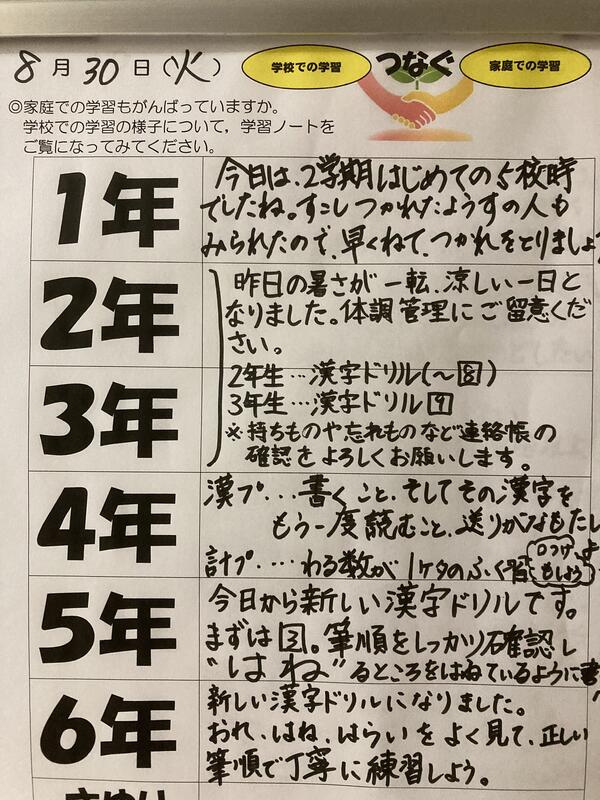 8月30日(火)
学校での学習
つなぐ
家庭での学習
◎家庭での学習もがんばっていますか。
学校での学習の様子について，学習ノートを
ご覧になってみてください。
1年
今日は、2学期はじめての5校時
でしたね。すこしつかれたようすの人も
みられたので、早くねて、つかれをとりましょ
2年
昨日の暑さが一転、涼しい一日と
なりました。体調管理にご留意くだ
さい。
2年生…漢字ドリル(〜8)
3年
3年生…漢字ドリル9
※持ちものや忘れものなど連絡帳の
確認をよろしくお願いします。
4年
漢プ...書くこと、そしてその漢字を
もう一度読むこと、送りがなもたし
計プ....わる数が1ケタのふく習
〇つけ
もしよう
5年
今日から新しい漢字ドリルです。
まずは3。筆順をしっかり確認し
"はね"るところをはねているように書
6年
新しい漢字ドリルになりました。
おれ、はね、はらいをよく見て、正しい
筆順で丁寧に練習しよう。